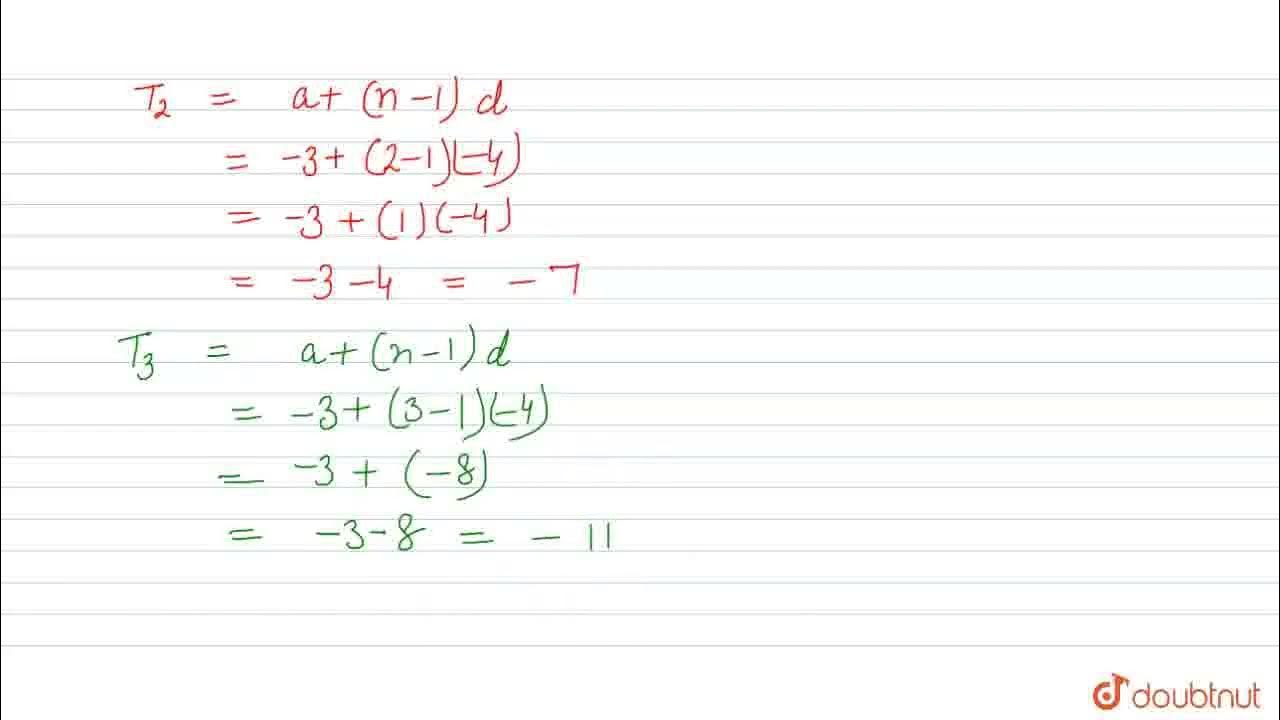 T₂ = a + (n - 1) d
= -3 + (2 - 1)(-4)
= -3 + (1)(-4)
= -3 - 4 = -7
T₃ = a + (n - 1) d
= -3 + (3 - 1)(-4)
= -3 + (-8)
= -3 - 8 = -11
doubtnut